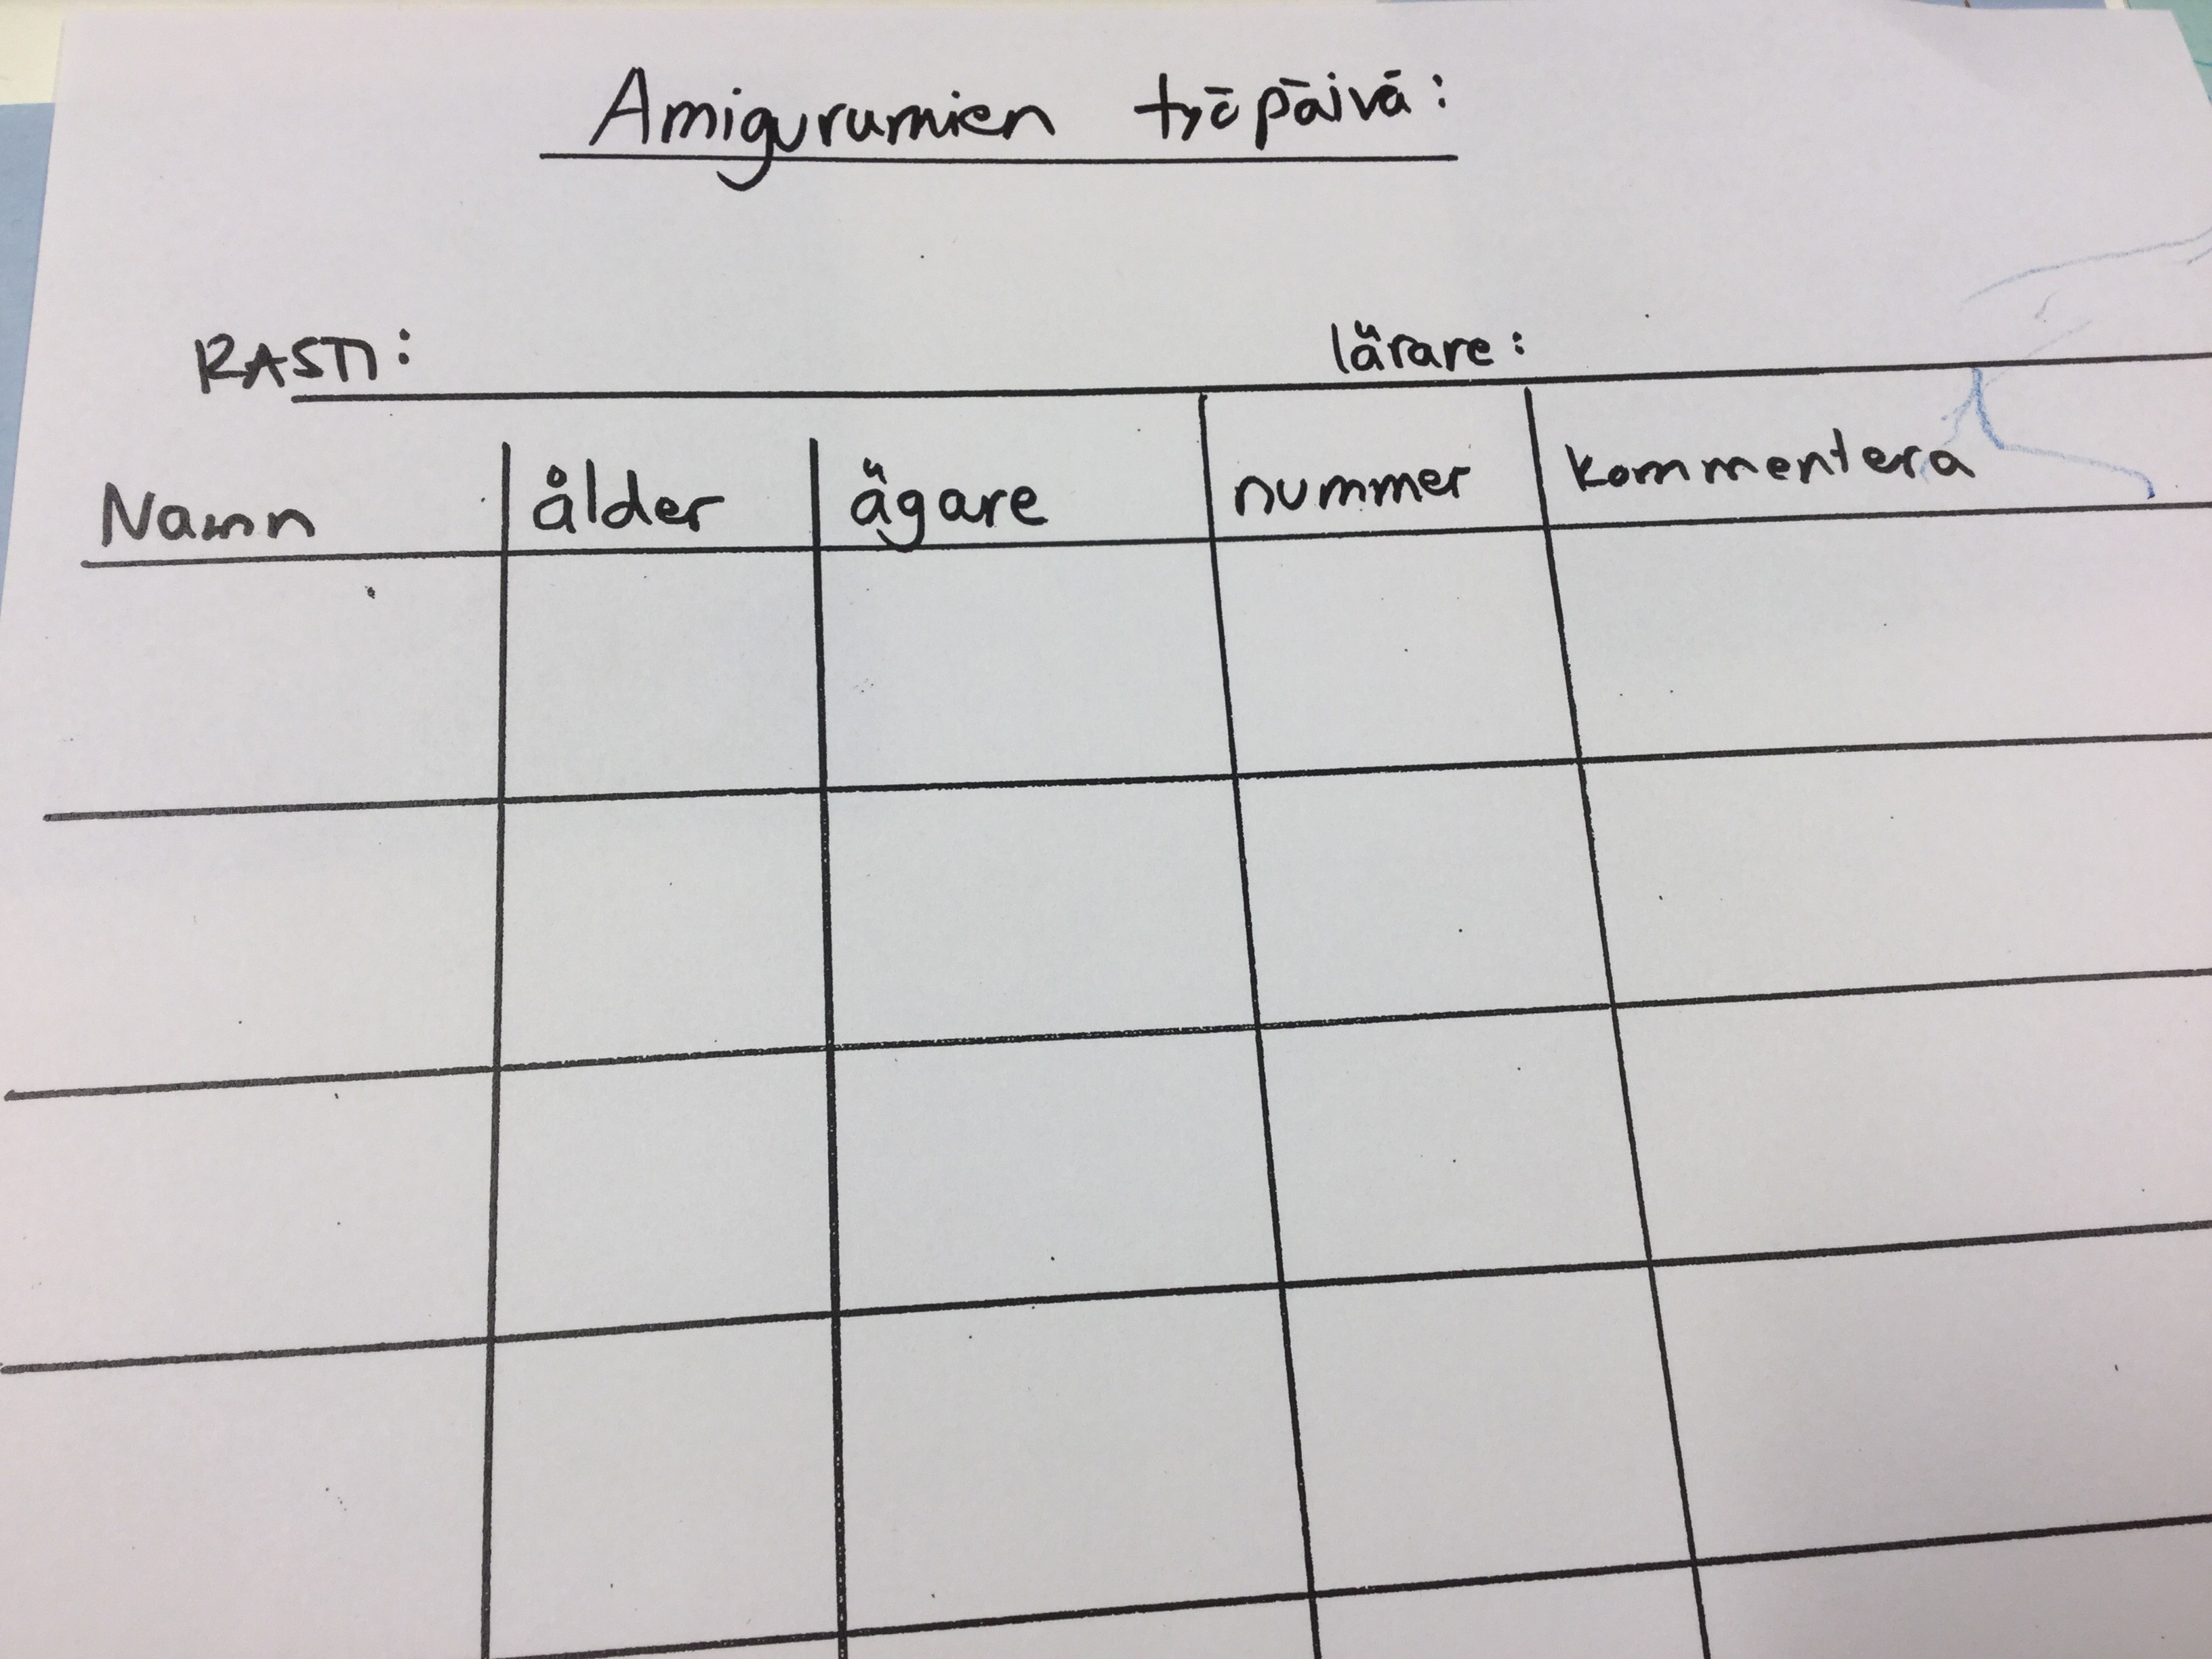 Amigurumien työpäivä:
RASTI: lärare:
Namn ålder ägare nummer kommentera